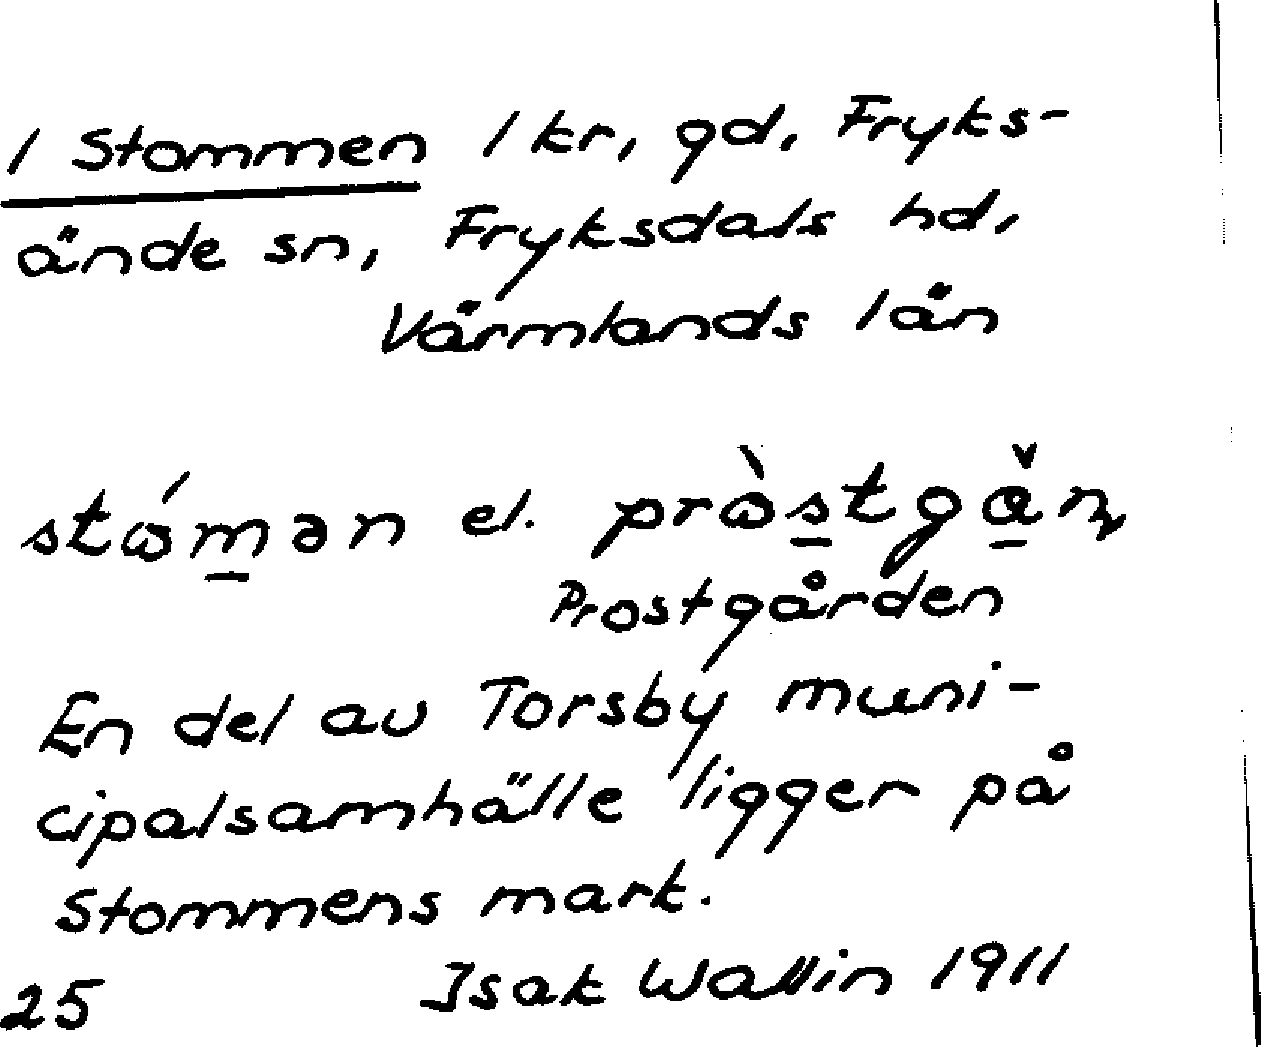 1 Stommen 1 kr, gd, Fryks-
ände sn, Fryksdals hd,
Värmlands län
stɷ́m̱ən el. prɷ̀s̱tgɑ̱̌ɳ
Prostgården
En del av Torsby muni-
cipalsamhälle ligger på
Stommens mark.
25 Isak Wallin 1911